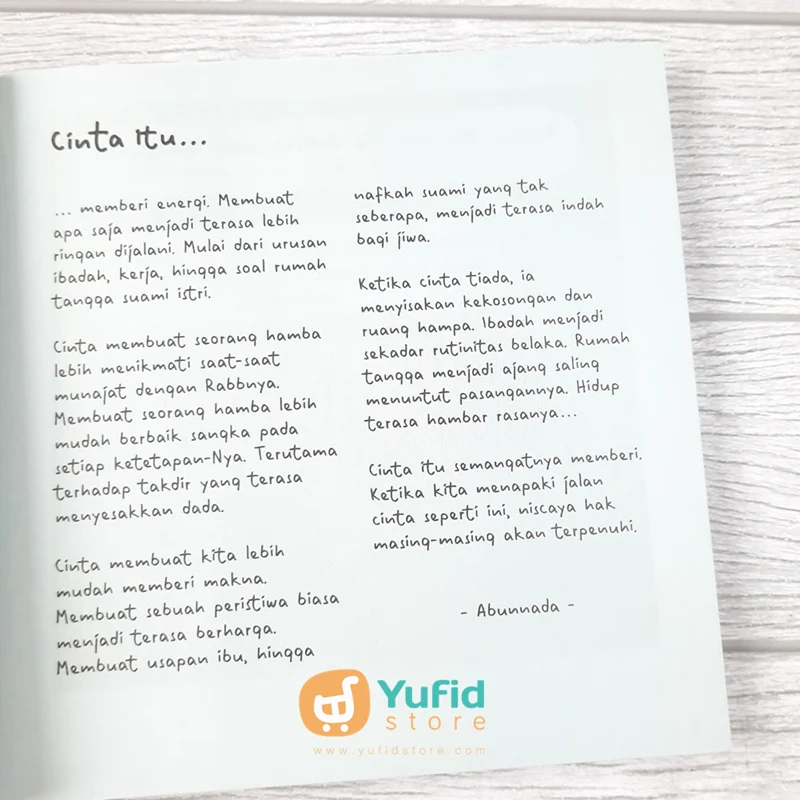 Cinta Itu...
... memberi energi. Membuat
apa saja menjadi terasa lebih
ringan dijalani. Mulai dari urusan
ibadah, kerja, hingga soal rumah
tangga suami istri.
Cinta membuat seorang hamba
lebih menikmati saat-saat
munajat dengan Rabbnya.
Membuat seorang hamba lebih
mudah berbaik sangka pada
setiap ketetapan-Nya. Terutama
terhadap takdir yang terasa
menyesakkan dada.
Cinta membuat kita lebih
mudah memberi makna.
Membuat sebuah peristiwa biasa
menjadi terasa berharga.
Membuat usapan ibu, hingga
nafkah suami yang tak
seberapa, menjadi terasa indah
bagi jiwa.
Ketika cinta tiada, ia
menyisakan kekosongan dan
ruang hampa. Ibadah menjadi
sekadar rutinitas belaka. Rumah
tangga menjadi ajang saling
menuntut pasangannya. Hidup
terasa hambar rasanya...
Cinta itu semangatnya memberi.
Ketika kita menapaki jalan
cinta seperti ini, niscaya hak
masing-masing akan terpenuhi.
- Abunnada -
Yufid
store
www.yufidstore.com